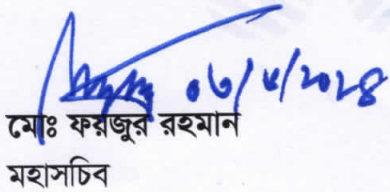 ০৬/৫/২০২৪
মোঃ ফয়জুর রহমান
মহাসচিব